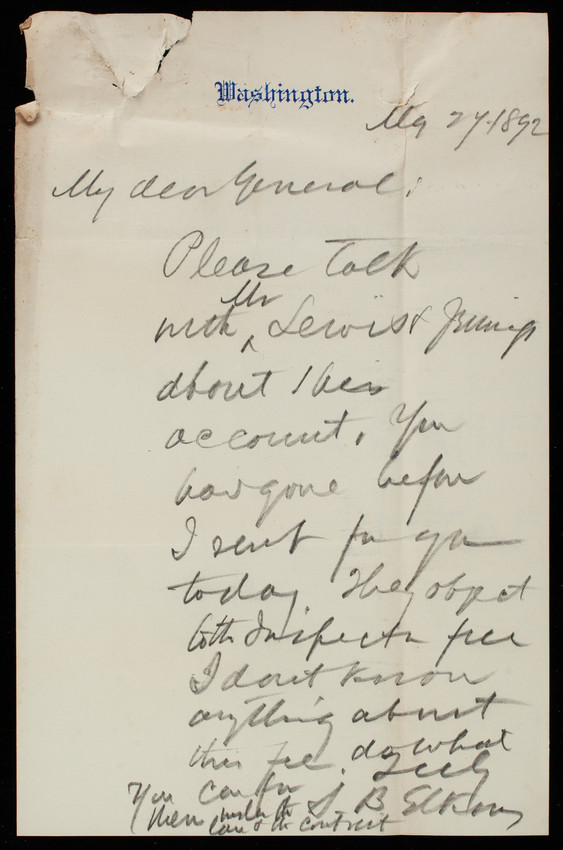 Washington.
May 27-1892
My dear General:
Please talk
with ^Mr Lewis & Jennings
about their
account. You
had gone before
I sent for you
today They object
to the Inspectn fee
I dont know
anything about
this fee. do what
You can for
them under the
law & the contract
Truly
S B Elkins